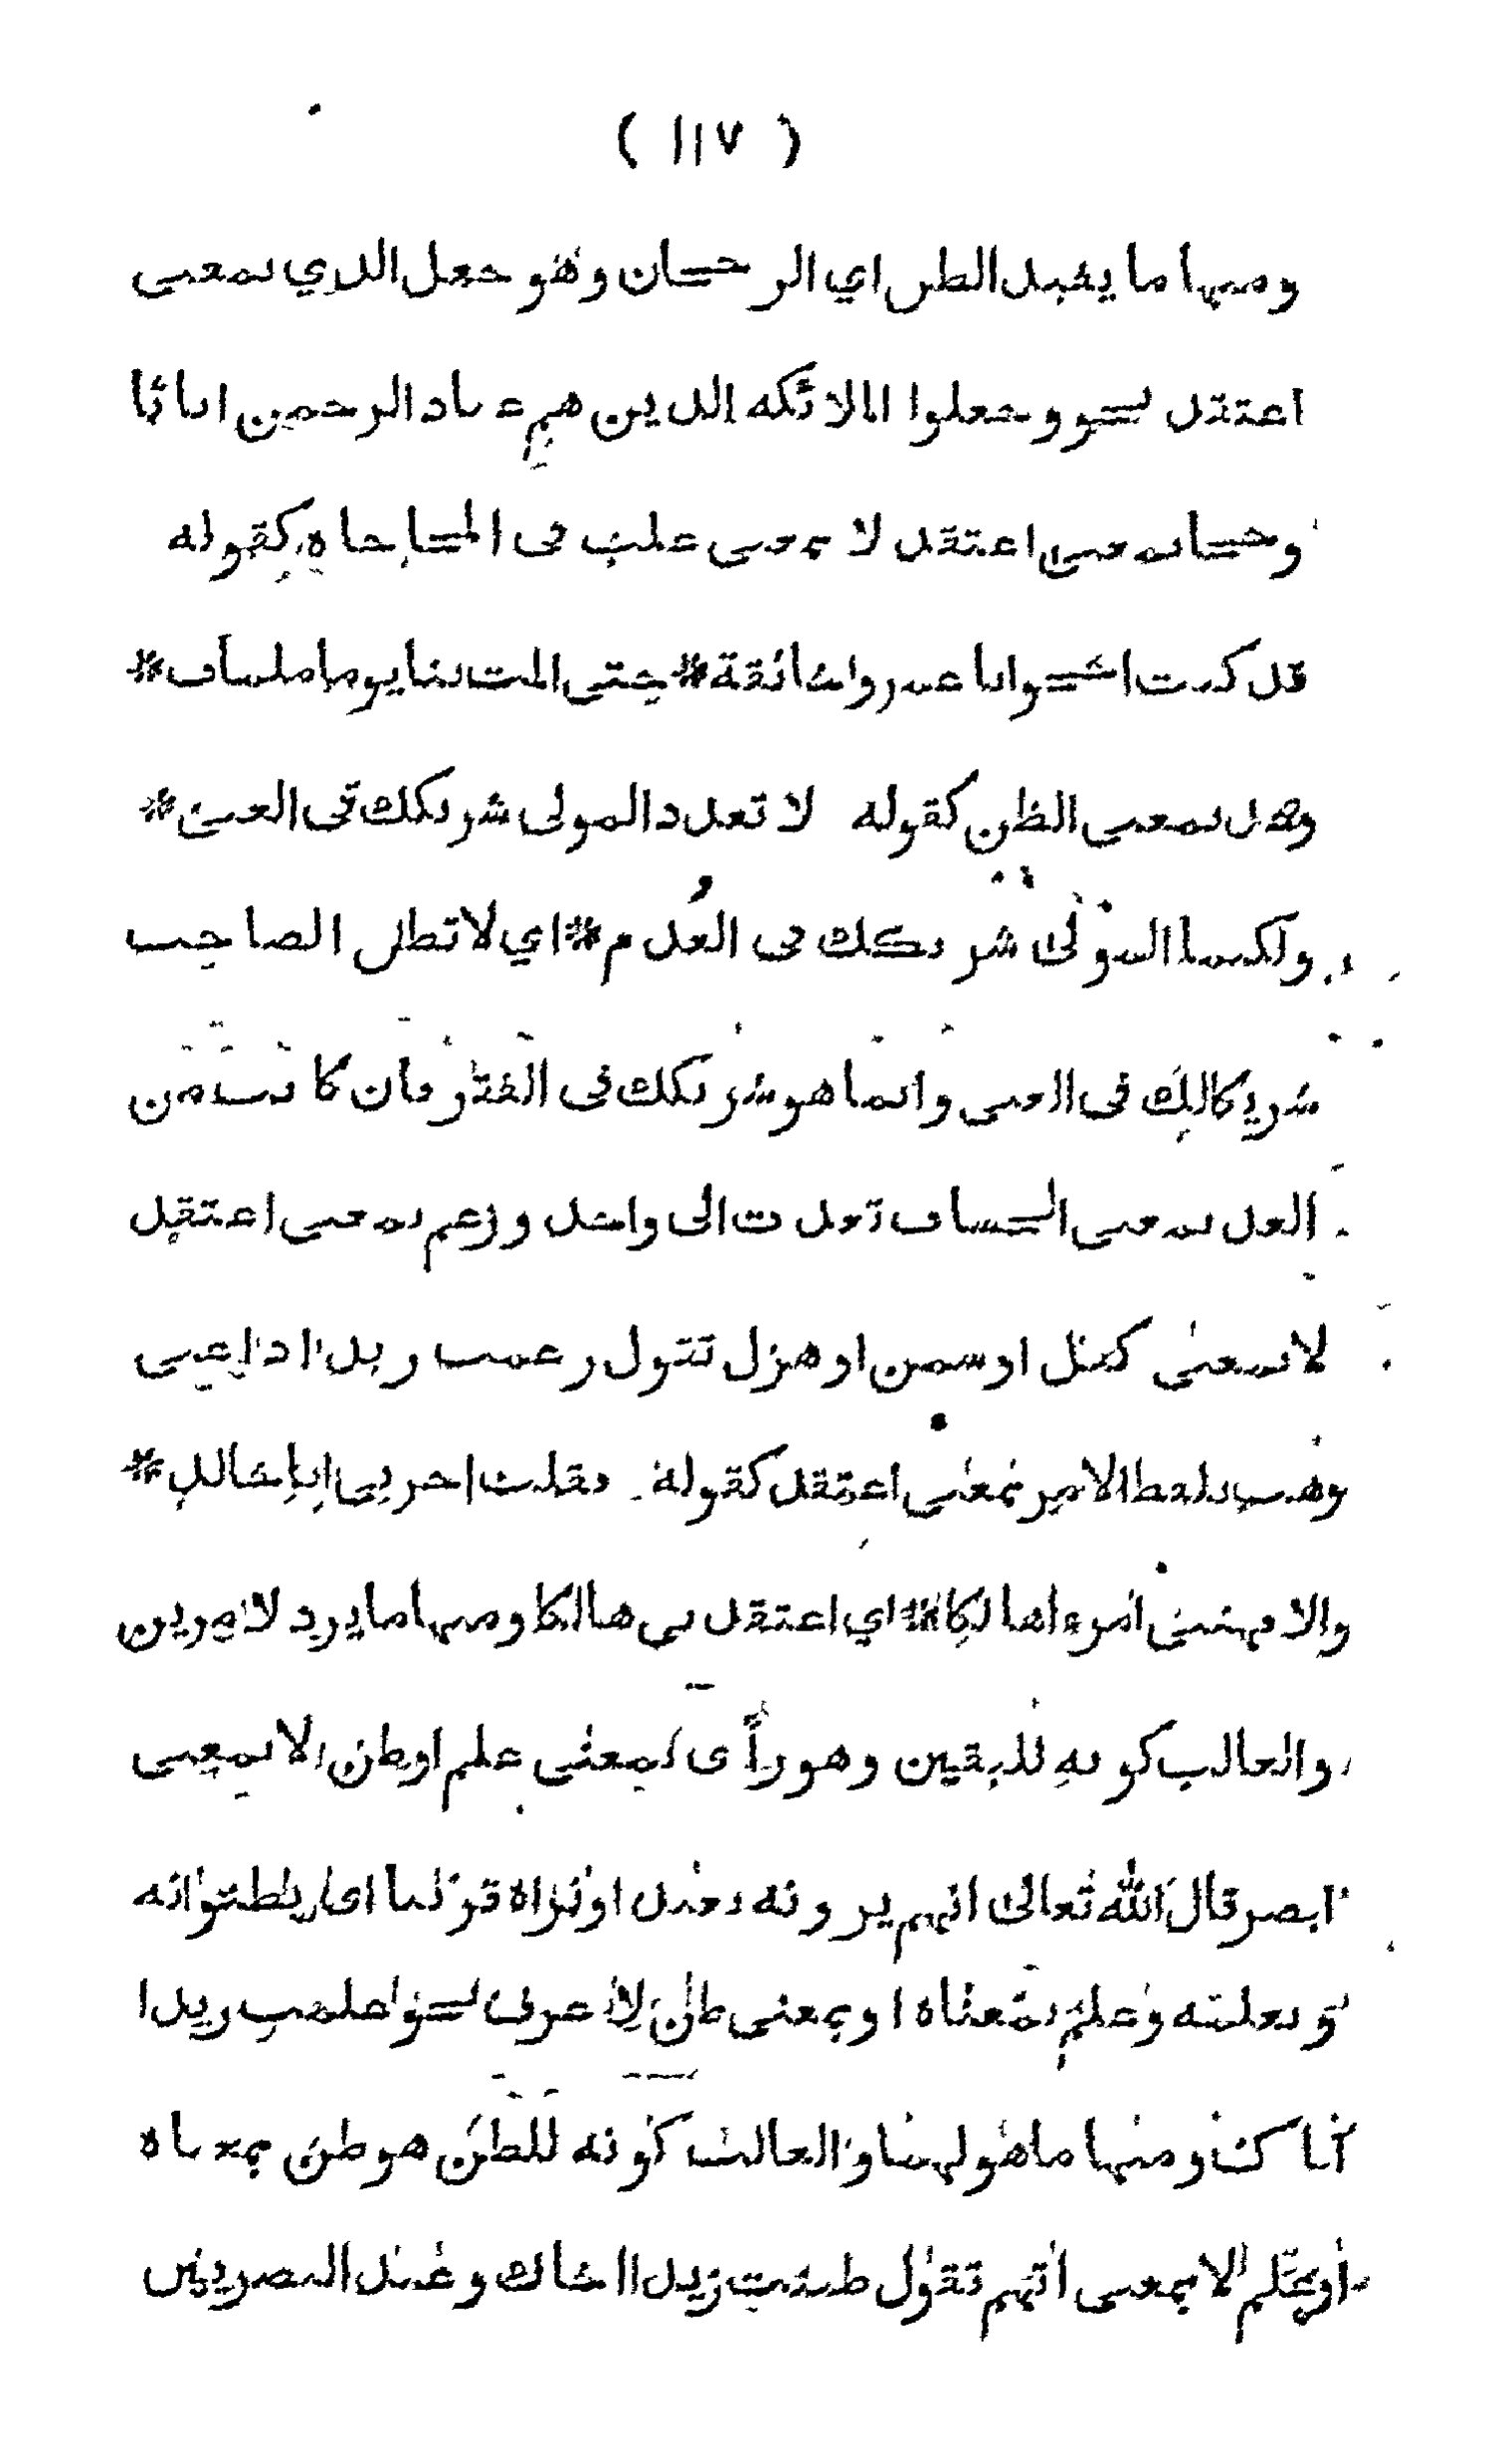 ( ١١٧ )
ومنها ما يفيد الظن اي الرجحان وهو جعل الذي بمعنى
اعتقد نحو وجعلوا الملائكة الذين هم عباد الرحمن اناثا
وحجا بمعنى اعتقد لا بمعنى غلب في المحاجاة كقوله
قد كنت احجوابا عمرواخائقة * حتى المت بنا يوما ملمات *
وعد بمعنى الظن كقوله لا تعدد المولى شريكك في الغنى *
ولكنما المولى شريكك في العدم * اي لا تظن الصاحب
شريكالك في الغنى وانما هو شريكك في الفقر فان كانت من
العد بمعنى الحساب تعدت الى واحد وزعم بمعنى اعتقد
لا بمعنى كفل او سمن او هزل تقول زعمت زيدا داعيى
وهب بلفظ الامر بمعنى اعتقد كقوله فقلت اجرني ابا خالد *
والا فهبني امرءا هالكا * اي اعتقدني هالكا ومنها ما يرد لامرين
والغالب كونه لليقين وهو رأى بمعنى علم او ظن لا بمعنى
ابصر قال الله تعالى انهم يرونه بعيدا ونراه قريبا اي يظنوانه
و نعلمه وعلم بمعناه او بمعنى ظن لا عرف نحو علمت زيدا
اخاك ومنها ما هو لهما والغالب كونه للظن هو ظن بمعناه
او بعلم لا بمعنى اتهم تقول ظننت زيدا اخاك وعند البصريين